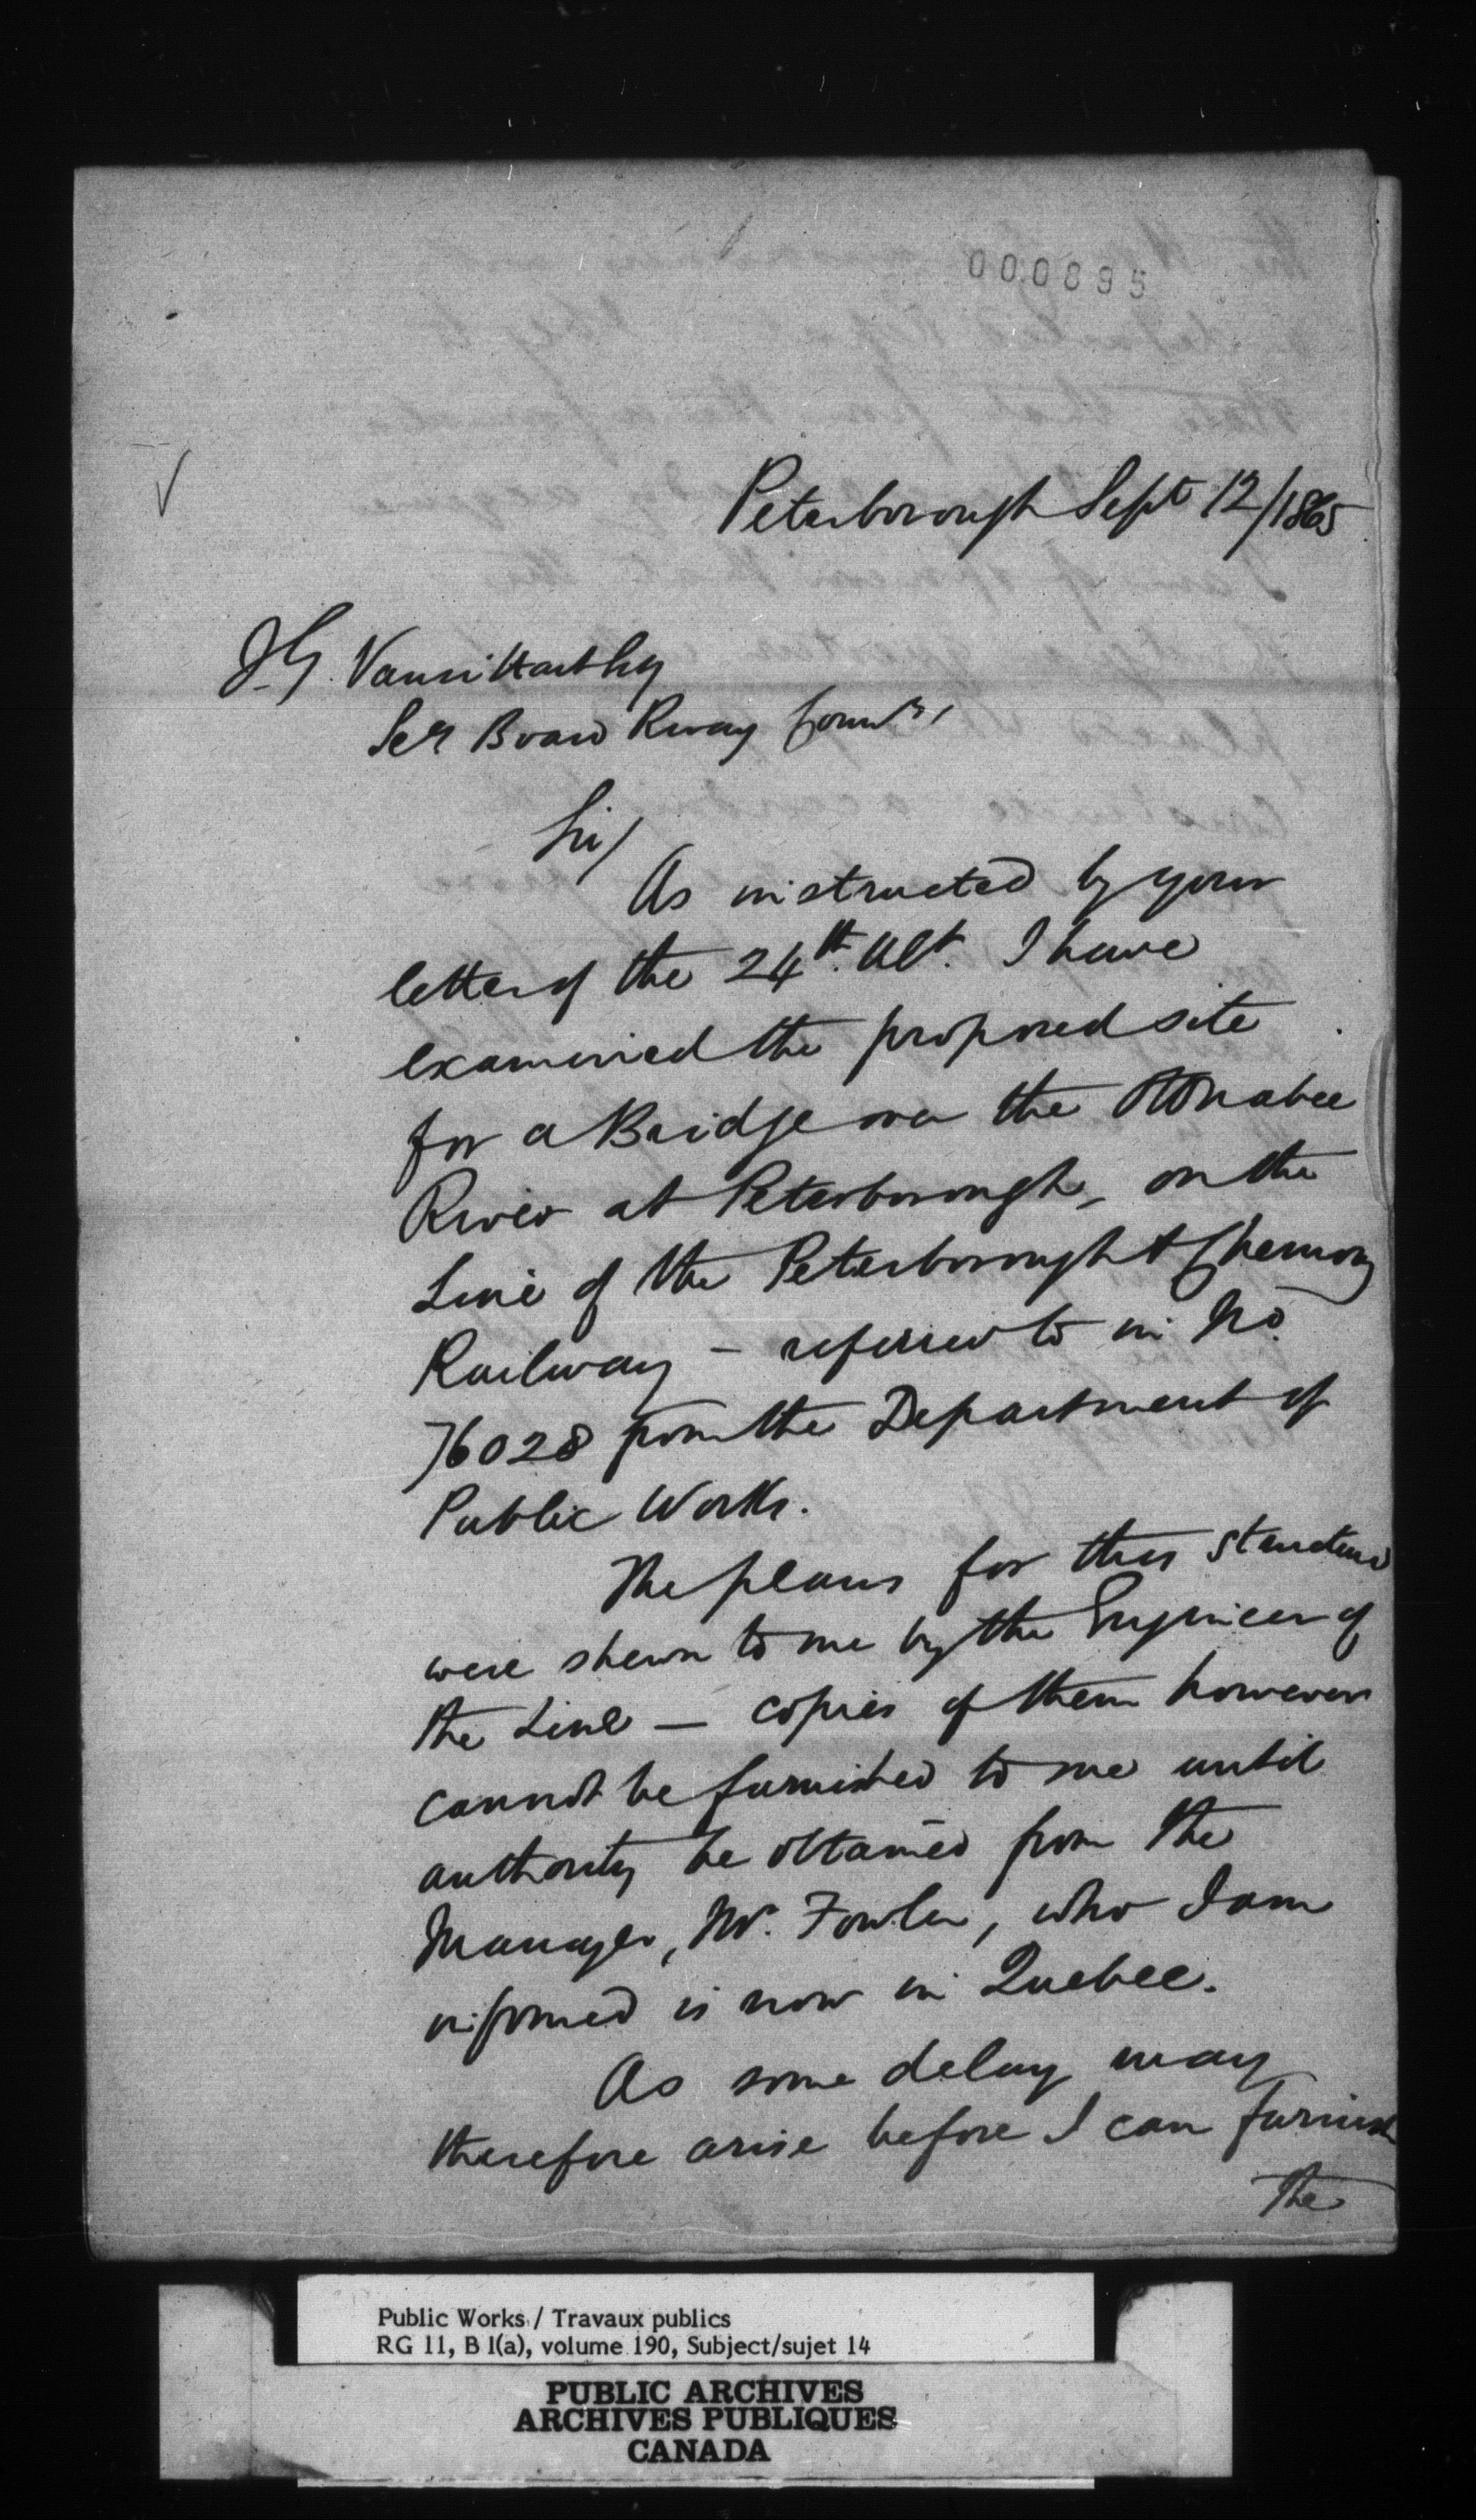 000895
Peterborough Sept 12/1865
J.G. Vansittart Esq
Sec Board Rway Comrs,
Sir/
As instructed by your
letter of the 24th. Ult. I have
examined the proposed site
for a Bridge over the Otonabee
River at Peterborough, on the
Line of the Peterborough & Chemong
Railway – referred to in No.
76028 from the Department of
Public Works.
The plans for this structure
were shewn to me by the Engineer of
the Line — copies of them however
cannot be furnished to me until
authority be obtained from the
Manager, Mr. Fowler, who I am
informed is now in Quebec.
As some delay may
therefore arise before I can furnish
the
Public Works / Travaux publics
RG 11, B 1(a), volume 190, Subject/sujet 14
PUBLIC ARCHIVES
ARCHIVES PUBLIQUES
CANADA